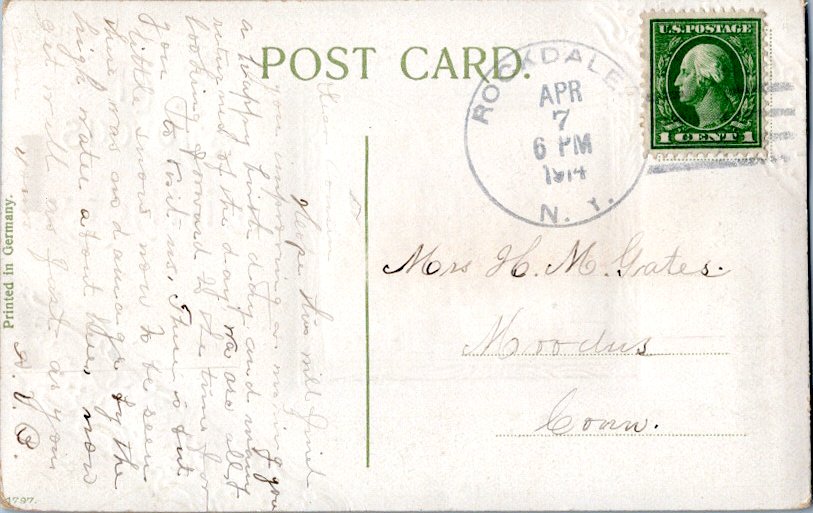 POST CARD.
U.S. POSTAGE
1 CENT 1
ROCKDALE
APR
7
6 PM
1914
N. Y.
Mrs H. M. Gates.
Moodus
Conn.
Dear Cousin
Hope this will find
you improving & wishing you
a happy birth day and many
returns of the day. We are all
looking forward to the time for
you to visit us. There is but
little snow now to be seen
there was no damage by the
high water about here, now
get well as fast as you
can
A. V. B.
Printed in Germany.
1797.